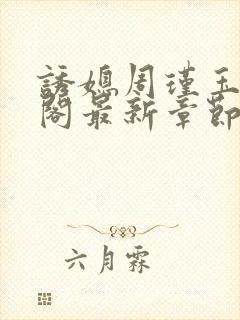 誘媳周瑾玉
閣最新章節
六月霖